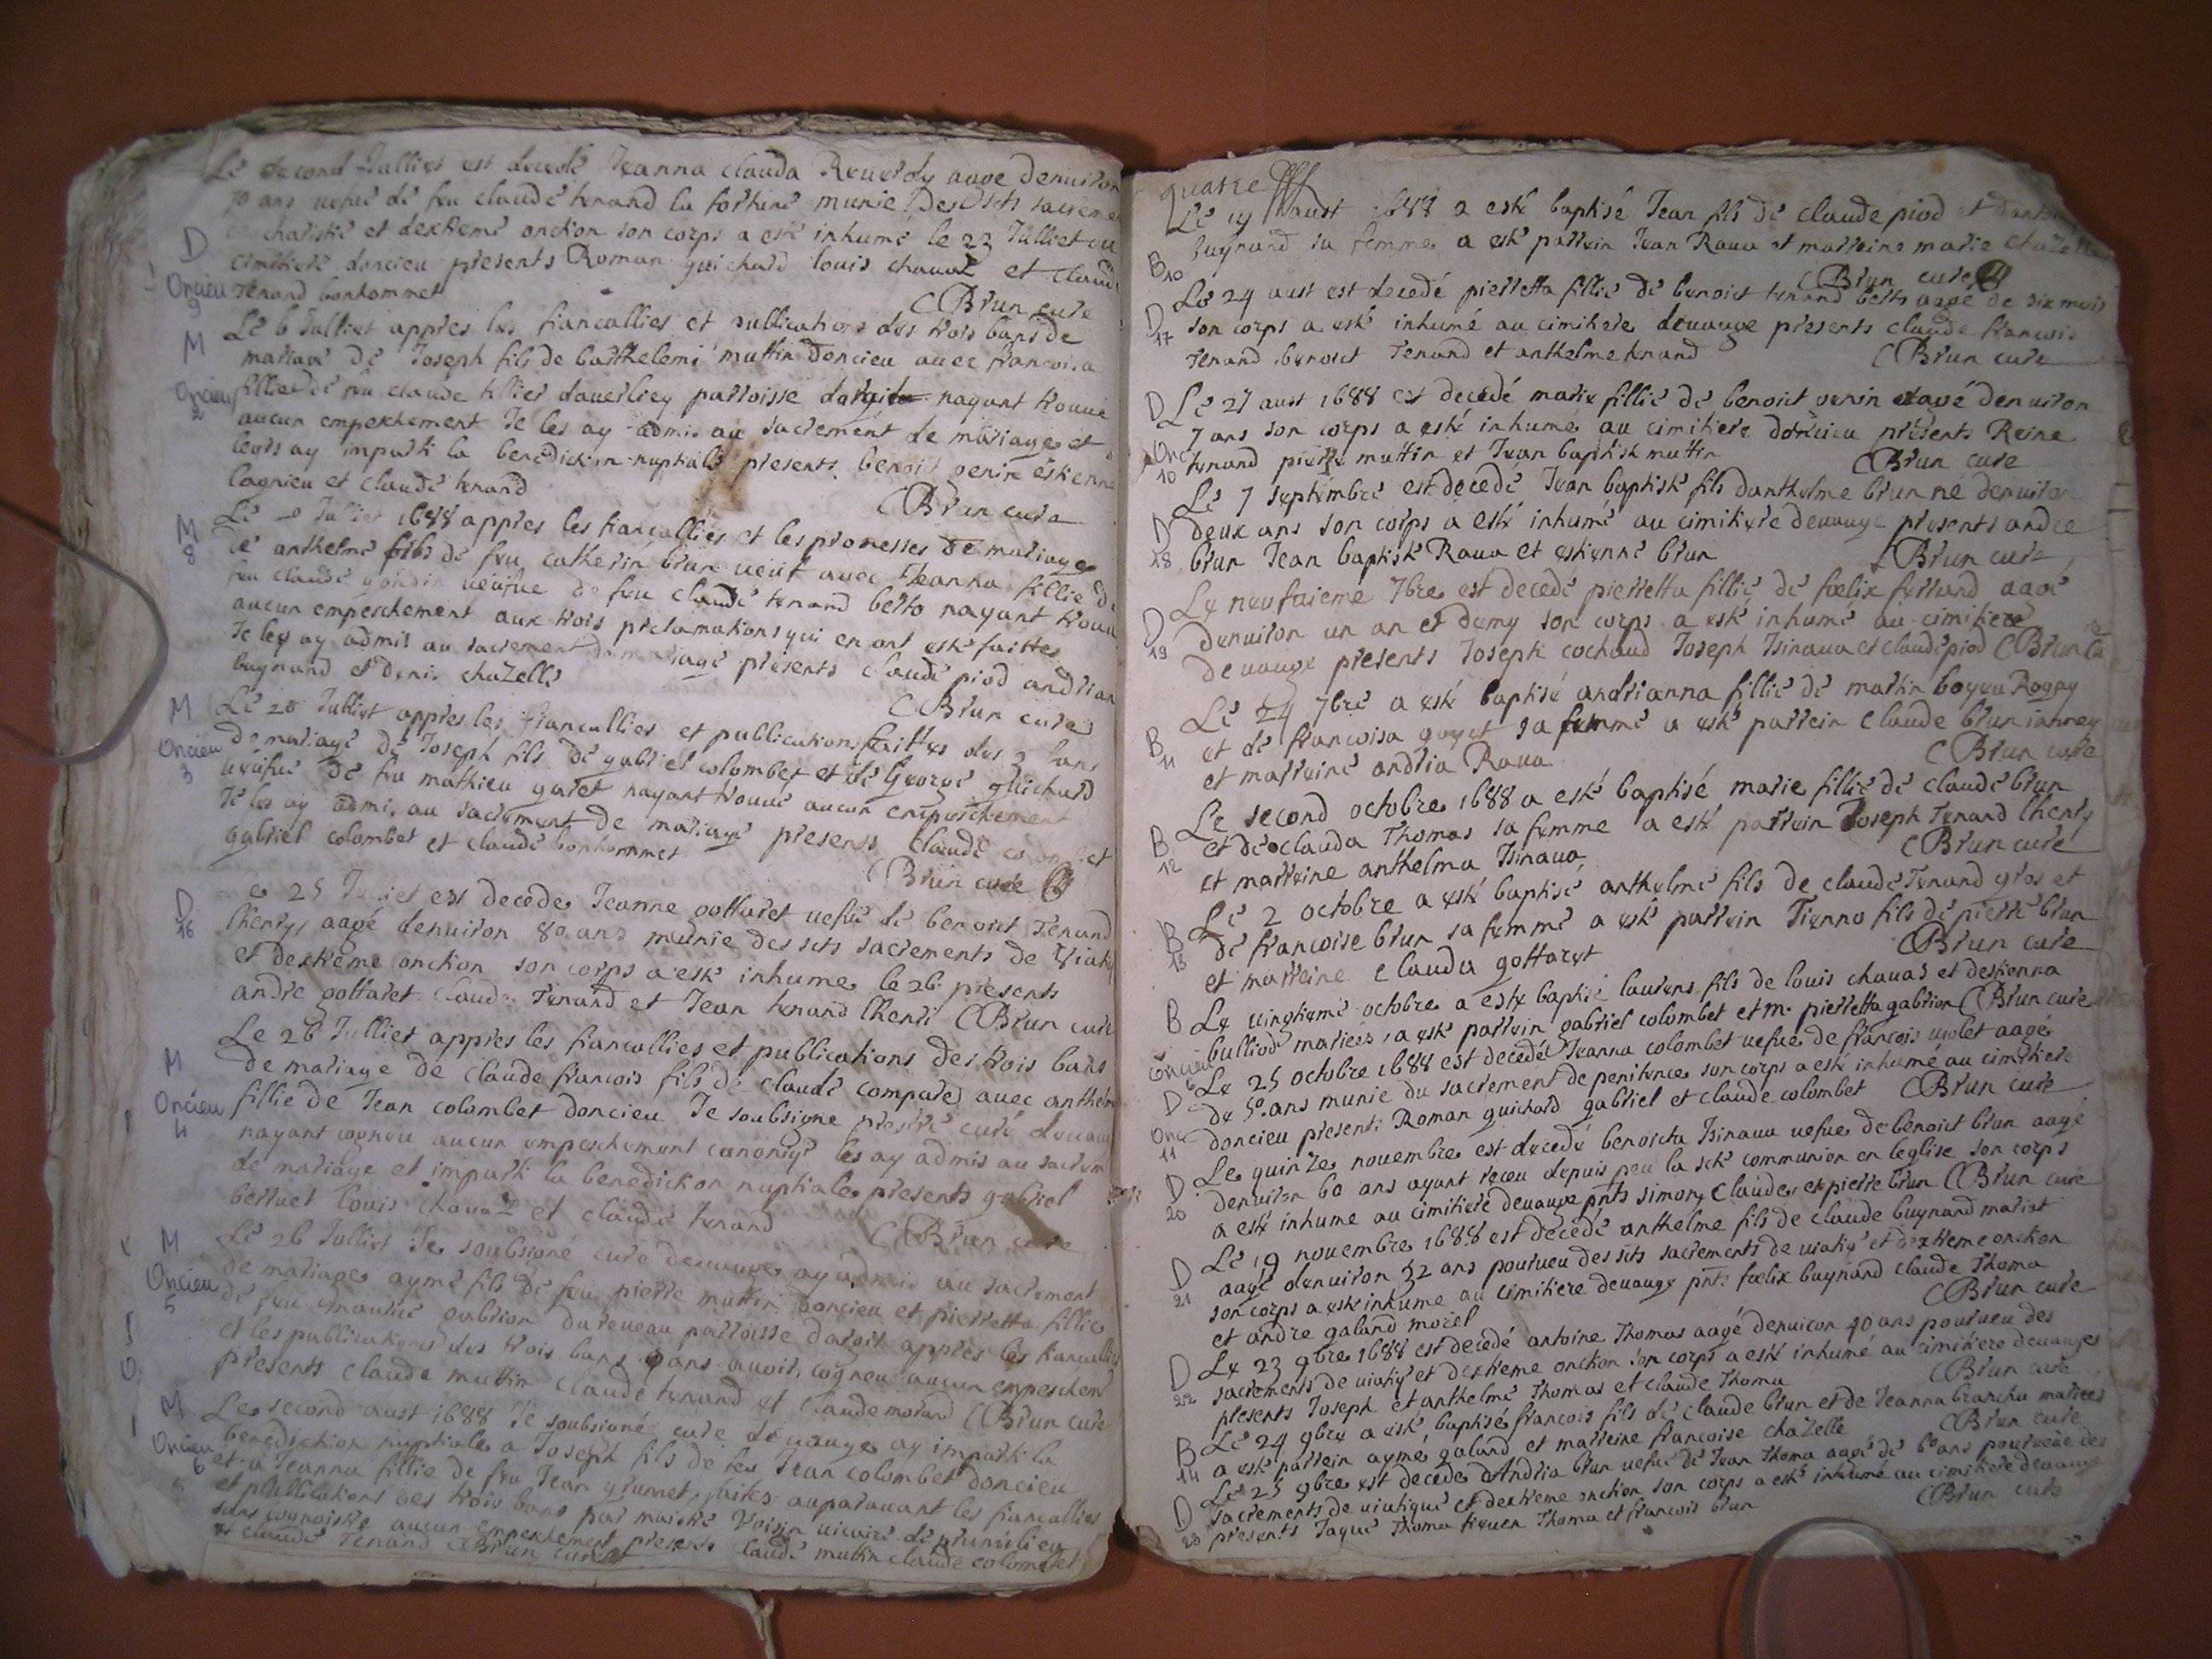 Le second Julliet est decedé Jeanna clauda Reverdy aage denviron
70 ans vefue de feu claude tenand la forhune munie des scts sacremen
charistie et dextreme onction son corps a esté inhumé le 23 Julliet au
D
cimitiere doncieu presents Roman guichard louis chavaz et claude
Oncieu
9
tenand bonhommet
C Brun cure
Le 6 Julliet appres les fiancallies et publications des trois bans de
M
mariage de Joseph fils de barthelemi muttin doncieu avec francoisa
Oncieu
2
fillie de feu claude tillier daverliey parroisse nayant trouve
aucun empeschement Je les ay admis au sacrement de mariage et
leurs ay imparti la benediction nuptiale presents benoit venin estienne
lagnieu et claude tenand
C Brun cure
M
8
Le Julliet 1688 appres les fiancallies et les promesses de mariage
de anthelme fils de feu catherin brun veuf avec Jeanna fillie de
feu claude gondin veufue de feu claude tenand betto nayant trouve
aucun empeschement aux trois proclamations qui en ont esté faittes
Je les ay admis au sacrement de mariage presents claude piod andrian
buynand et denis chazelle
C Brun cure
M
Oncieu
3
Le 20 Julliet appres les fiancallies et publications faittes des 3 bans
de mariage de Joseph fils de gabriel colombet et de George guichard
veufue de feu mathieu garet nayant trouve aucun empeschement
Je les ay admis au sacrement de mariage presents claude colombet
gabriel colombet et claude bonhommet
C Brun cure
D
16
Le 25 Julliet est decede Jeanne gottaret vefue de benoict Tenand
lhenry aagé denviron 80 ans munie des scts sacrements de viatiq
et dextreme onction son corps a esté inhume le 26 presents
andre gottaret claude Tenand et Jean tenand lhenri C Brun cure
M
Oncieu
4
Le 26 Julliet appres les fiancallies et publications des trois bans
de mariage de claude francois fils de claude compare avec anthelm
fillie de Jean colombet doncieu Je soubsigne prestre curé devauge
nayant cogneu aucun empeschement canoniq les ay admis au sacrem
de mariage et imparti la benediction nuptiale presents gabriel
berruet louis chavaz et claude tenand
C Brun cure
M
Oncieu
5
Le 26 Julliet Je soubsigné curé devauge ay admis au sacrement
de mariage aymé fils de feu pierre muttin doncieu et pierretta fillie
de feu maurice gabrion du reveau parroisse darvit appres les fiancallies
et les publications des trois bans sans avoir cogneu aucun empeschem
presents claude muttin claude tenand et claude morand C Brun cure
M
Oncieu
6
Le second aust 1688 Je soubsigné cure devauge ay imparti la
benediction nuptiale a Joseph fils de feu Jean colombet doncieu
et a Jeanna fillie de feu Jean grumet faites auparavant les fiancallies
et publications des trois bans par maistre Voisin vicaire de prumilieu
sans cognoistre aucun empeschement presents claude muttin claude colombet
et claude Tenand C Brun cure
quatre
Le 19 aust 1688 a esté baptisé Jean fils de claude piod et dantoi
B
10
buynand sa femme a esté parrein Jean Rava et marreine marie chazelle
C Brun cure
D
17
Le 24 aust est decedé pierretta fillie de benoict tenand betto aagé de six mois
son corps a esté inhumé au cimitiere devauge presents claude francois
tenand benoict Tenand et anthelme tenand
C Brun cure
D
Onc
10
Le 27 aust 1688 est decedé marie fillie de benoict venin aagé denviron
7 ans son corps a esté inhumé au cimitiere doncieu presents Reine
tenand pierre muttin et Jean baptiste muttin
C Brun cure
D
18
Le 7 septembre est decedé Jean baptiste fils danthelme brun né denviron
deux ans son corps a esté inhumé au cimitiere devauge presents andre
brun Jean baptiste Rava et estienne brun
C Brun cure
D
19
Le neufuieme 7bre est decedé pierretta fillie de foelix ferrand aagé
denviron un an et demy son corps a esté inhumé au cimitiere
devauge presents Joseph cochaud Joseph Isinava et claude piod C Brun cu
B
11
Le 24 7bre a esté baptisé andrianna fillie de martin boyeu Rogay
et de francoisa goyet sa femme a esté parrein claude brun ianney
et marreine andria Rava
C Brun cure
B
12
Le second octobre 1688 a esté baptisé marie fillie de claude brun
et de clauda Thomas sa femme a esté parrein Joseph Tenand lhenry
et marreine anthelma Isinava
C Brun cure
B
13
Le 2 octobre a esté baptisé anthelme fils de claude Tenand gros et
de francoise brun sa femme a esté parrein Tienno fils de pierre brun
et marreine clauda gottaret
C Brun cure
B
Oncieu
6
Le vingtieme octobre a esté baptisé laurens fils de louis chavaz et destienna
bulliod mariés a esté parrein gabriel colombet et m. pierretta gabrion C Brun cure
D
Onc
11
Le 25 octobre 1688 est decedé Jeanna colombet vefue de francois violet aagé
de 50 ans munie du sacrement de penitence son corps a esté inhumé au cimitiere
doncieu presents Roman guichard gabriel et claude colombet C Brun cure
D
20
Le quinze novembre est decedé benoicta Isinava vefue de benoict brun aagé
denviron 60 ans ayant receu depuis peu la scte communion en leglise son corps
a esté inhume au cimitiere devauge pnts simon claude et pierre brun C Brun cure
D
21
Le 19 novembre 1688 est decedé anthelme fils de claude buynand mariot
aagé denviron 32 ans pourveu des scts sacrements de viatiq et dextreme onction
son corps a esté inhume au cimitiere devauge pnts foelix buynand claude Thoma
et andre galand morel
C Brun cure
D
22
Le 23 9bre 1688 est decedé antoine Thomas aagé denviron 40 ans pourveu des
sacrements de viatiq et dextreme onction son corps a esté inhumé au cimitiere devauge
presents Joseph et anthelme Thomas et claude Thoma
C Brun cure
B
14
Le 24 9bre a esté baptisé francois fils de claude brun et de Jeanna brancha mariés
a esté parrein aymé galand et marreine francoise chazelle
C Brun cure
D
23
Le 25 9bre est decedé Andria brun vefue de Jean Thoma aagé de 60 ans pourveue des
sacrements de viatique et dextreme onction son corps a esté inhumé au cimitiere devauge
presents Jaque Thoma Thoma et francois brun
C Brun cure